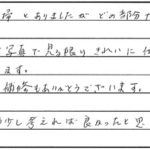 掃 とありましたが どの部分
写真で見る限り きれいに仕
ます。
補修もありがとうございます。
少し考えれば 良かったと思